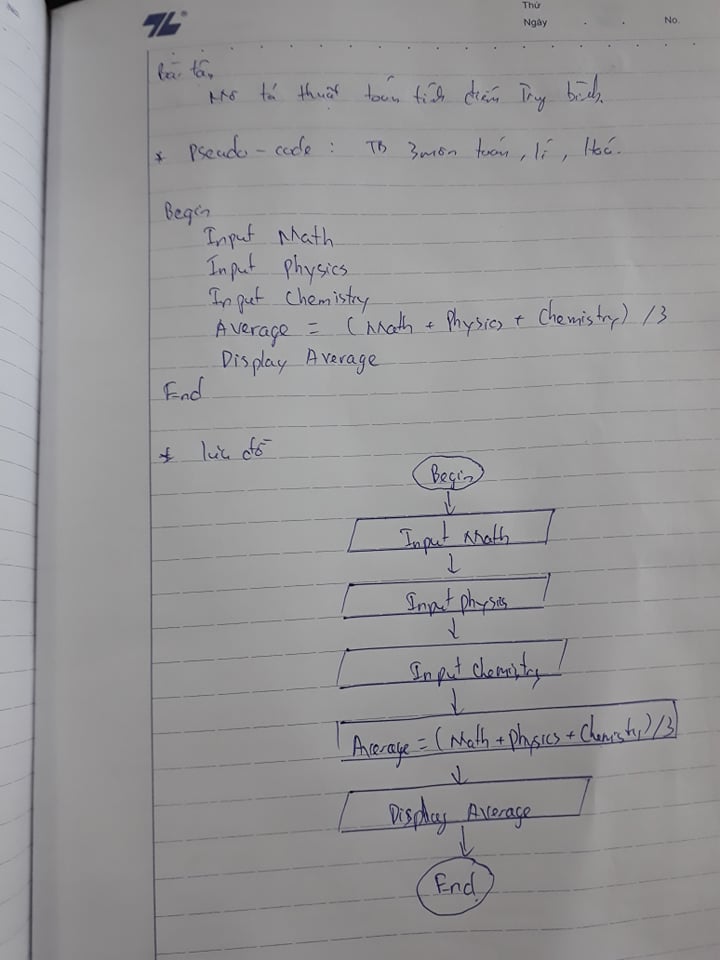 TL
Thứ
Ngày . . No.
Bài tập
Mô tả thuật toán tính điểm Trung bình.
* Pseudo-code : TB 3 môn toán, lí, Hoá.
Begin
Input Math
Input physics
Input Chemistry
Average = (Math + Physics + Chemistry) /3
Display Average
End
* lưu đồ
Begin
Input Math
Input physics
Input Chemistry
Average = (Math + physics + Chemistry)/3
Display Average
End